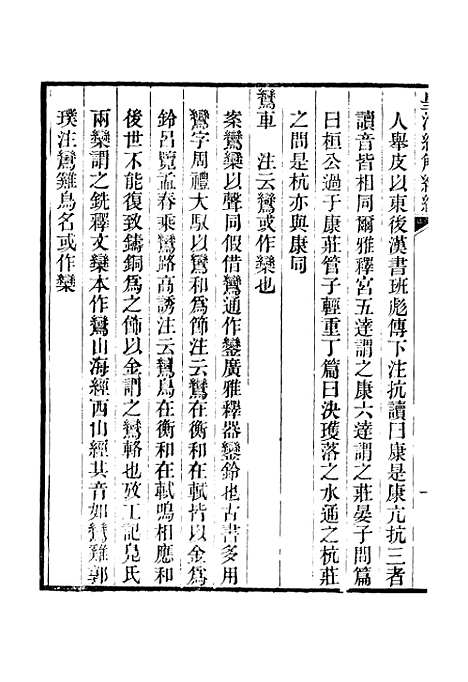 皇清經解續編
一
人舉皮以東後漢書班彪傳下注抗讀曰康是康亢抗三者
讀音皆相同爾雅釋宮五達謂之康六達謂之莊晏子問篇
曰桓公過于康莊管子輕重丁篇曰決瓁落之水通之杭莊
之間是杭亦與康同
鸞車　注云鸞或作欒也
案鸞欒以聲同假借鸞通作鑾廣雅釋器鑾鈴也古書多用
鸞字周禮大馭以鸞和爲節注云鸞在衡和在軾皆以金爲
鈴呂覽孟春乘鸞路高誘注云鸞鳥在衡和在軾鳴相應和
後世不能復致鑄銅爲之飾以金謂之鸞輅也攷工記鳧氏
兩欒謂之銑釋文欒本作鸞山海經西山經其音如鸞雞郭
璞注鸞雞鳥名或作欒